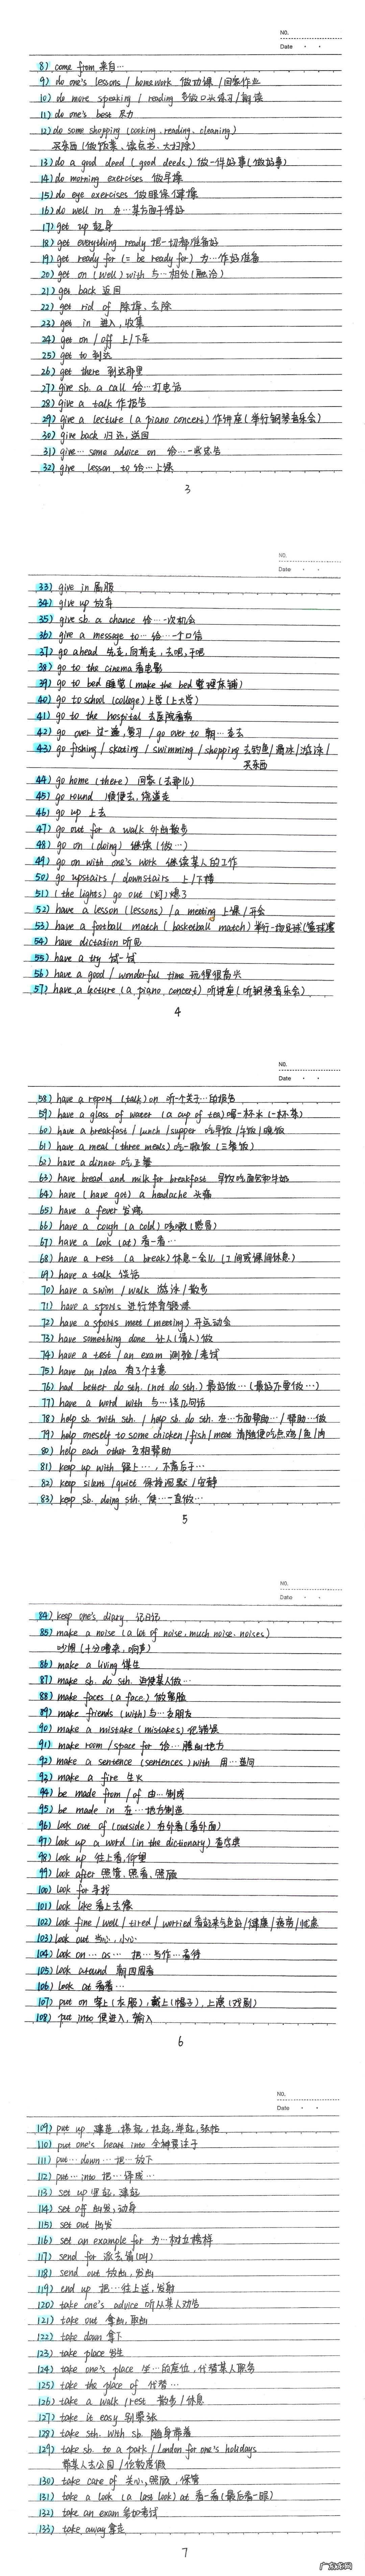 NO.
Date
8) come from 来自…
9) do one's lessons / homework 做功课 / 回家作业
10) do more speaking / reading 多做口头练习 / 朗读
11) do one's best 尽力
12) do some shopping (cooking, reading, cleaning)
买东西 (做饭菜、读点书、大扫除)
13) do a good deed (good deeds) 做一件好事 (做好事)
14) do morning exercises 做早操
15) do eye exercises 做眼保健操
16) do well in 在…某方面干得好
17) get up 起身
18) get everything ready 把一切都准备好
19) get ready for (= be ready for) 为…作好准备
20) get on (well) with 与…相处 (融洽)
21) get back 返回
22) get rid of 除掉、去除
23) get in 进入, 收集
24) get on / off 上/下车
25) get to 到达
26) get there 到达那里
27) give sb. a call 给…打电话
28) give a talk 作报告
29) give a lecture (a piano concert) 作讲座 (举行钢琴音乐会)
30) give back 归还, 送回
31) give… some advice on 给…一些忠告
32) give lesson to 给…上课
3
NO.
Date
33) give in 屈服
34) give up 放弃
35) give sb. a chance 给…一次机会
36) give a message to… 给…一个口信
37) go ahead 先走, 向前走, 去吧, 干吧
38) go to the cinema 看电影
39) go to bed 睡觉 (make the bed 整理床铺)
40) go to school (college) 上学 (上大学)
41) go to the hospital 去医院看病
42) go over 过一遍, 复习 / go over to 朝…走去
43) go fishing / skating / swimming / shopping 去钓鱼/溜冰/游泳/
买东西
44) go home (there) 回家 (去那儿)
45) go round 顺便去, 绕道走
46) go up 上去
47) go out for a walk 外出散步
48) go on (doing) 继续 (做…)
49) go on with one's work 继续某人的工作
50) go upstairs / downstairs 上/下楼
51) (the lights) go out (灯)熄了
52) have a lesson (lessons) / a meeting 上课 / 开会
53) have a football match (basketball match) 举行一场足球(篮球)赛
54) have dictation 听见
55) have a try 试一试
56) have a good / wonderful time 玩得很高兴
57) have a lecture (a piano concert) 听讲座 (听钢琴音乐会)
4
NO.
Date
58) have a report (talk) on 听一个关于…的报告
59) have a glass of water (a cup of tea) 喝一杯水 (一杯茶)
60) have a breakfast / lunch / supper 吃早饭 / 午饭 / 晚饭
61) have a meal (three meals) 吃一顿饭 (三餐饭)
62) have a dinner 吃正餐
63) have bread and milk for breakfast 早饭吃面包和牛奶
64) have (have got) a headache 头痛
65) have a fever 发烧
66) have a cough (a cold) 咳嗽 (感冒)
67) have a look (at) 看一看…
68) have a rest (a break) 休息一会儿 (工间或课间休息)
69) have a talk 谈话
70) have a swim / walk 游泳 / 散步
71) have a sports 进行体育锻炼
72) have a sports meet (meeting) 开运动会
73) have something done 让人(请人)做
74) have a test / an exam 测验 / 考试
75) have an idea 有了个主意
76) had better do sth. (not do sth.) 最好做… (最好不要做…)
77) have a word with 与…谈几句话
78) help sb. with sth. / help sb. do sth. 在…方面帮助… / 帮助…做
79) help oneself to some chicken / fish / meat 请随便吃点鸡 / 鱼 / 肉
80) help each other 互相帮助
81) keep up with 跟上…, 不落后于…
82) keep silent / quiet 保持沉默 / 安静
83) keep sb. doing sth. 使…一直做…
5
NO.
Date
84) keep one's diary 记日记
85) make a noise (a lot of noise, much noise, noises)
吵闹 (十分嘈杂, 响声)
86) make a living 谋生
87) make sb. do sth. 迫使某人做…
88) make faces (a face) 做鬼脸
89) make friends (with) 与…交朋友
90) make a mistake (mistakes) 犯错误
91) make room / space for 给…腾出地方
92) make a sentence (sentences) with 用…造句
93) make a fire 生火
94) be made from / of 由…制成
95) be made in 在…地方制造
96) look out of (outside) 在外看 (看外面)
97) look up a word (in the dictionary) 查字典
98) look up 往上看, 仰望
99) look after 照管, 照看, 照顾
100) look for 寻找
101) look like 看上去像
102) look fine / well / tired / worried 看起来气色好/健康/疲劳/忧虑
103) look out 当心, 小心
104) look on… as… 把…当作…看待
105) look around 朝四周看
106) look at 看着…
107) put on 穿上(衣服), 戴上(帽子), 上演(戏剧)
108) put into 使进入, 输入
6
NO.
Date
109) put up 建造, 搭起, 挂起, 举起, 张贴
110) put one's heart into 全神贯注于
111) put… down… 把…放下
112) put… into 把…译成…
113) set up 竖起, 建起
114) set off 出发, 动身
115) set out 出发
116) set an example for 为…树立榜样
117) send for 派去请(叫)
118) send out 放出, 发出
119) end up 把…往上送, 发射
120) take one's advice 听从某人劝告
121) take out 拿出, 取出
122) take down 拿下
123) take place 发生
124) take one's place 坐…的座位, 代替某人职务
125) take the place of 代替…
126) take a walk / rest 散步 / 休息
127) take it easy 别紧张
128) take sth. with sb. 随身带着
129) take sb. to a park / London for one's holidays
带某人去公园 / 伦敦度假
130) take care of 关心, 照顾, 保管
131) take a look (a last look) at 看一看 (最后看一眼)
132) take an exam 参加考试
133) take away 拿走
7